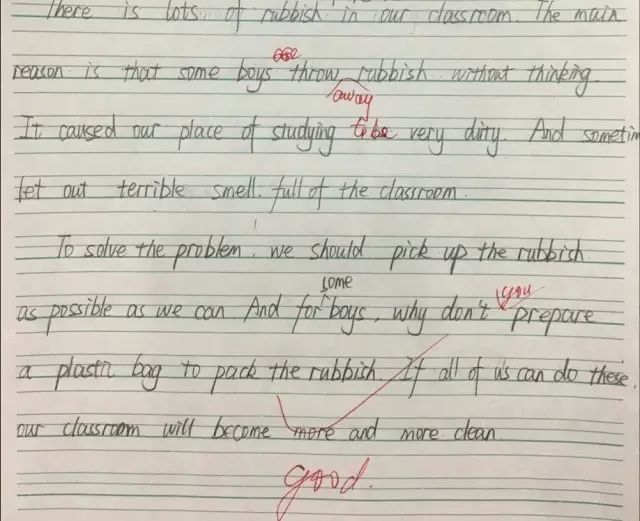 There is lots of rubbish in our classroom. The main
reason is that some boys throw rubbish without thinking.
away
It caused our place of studying to be very dirty. And sometim
let out terrible smell. full of the classroom.
To solve the problem, we should pick up the rubbish
some you
as possible as we can And for boys, why don't prepare
a plastic bag to pack the rubbish. If all of us can do these,
our classroom will become more and more clean
good.